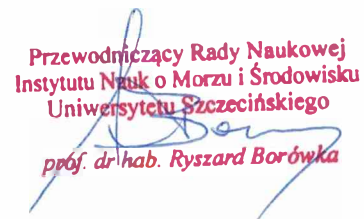 Przewodniczący Rady Naukowej
Instytutu Nauk o Morzu i Środowisku
Uniwersytetu Szczecińskiego
prof. dr hab. Ryszard Borówka